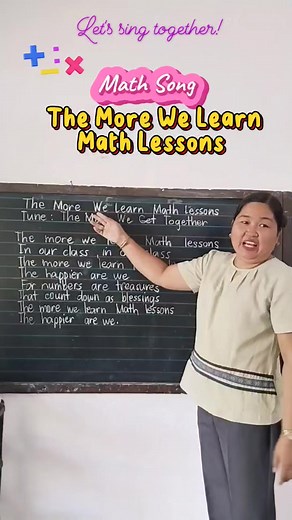 Let's sing together!
Math Song
The More We Learn
Math Lessons
The More We Learn Math Lessons
Tune: The More We Get Together
The more we Math lessons
In our class, in class
The more we learn
The happier are we
For numbers are treasures
That count down as blessings
The more we learn Math lessons
The happier are we.